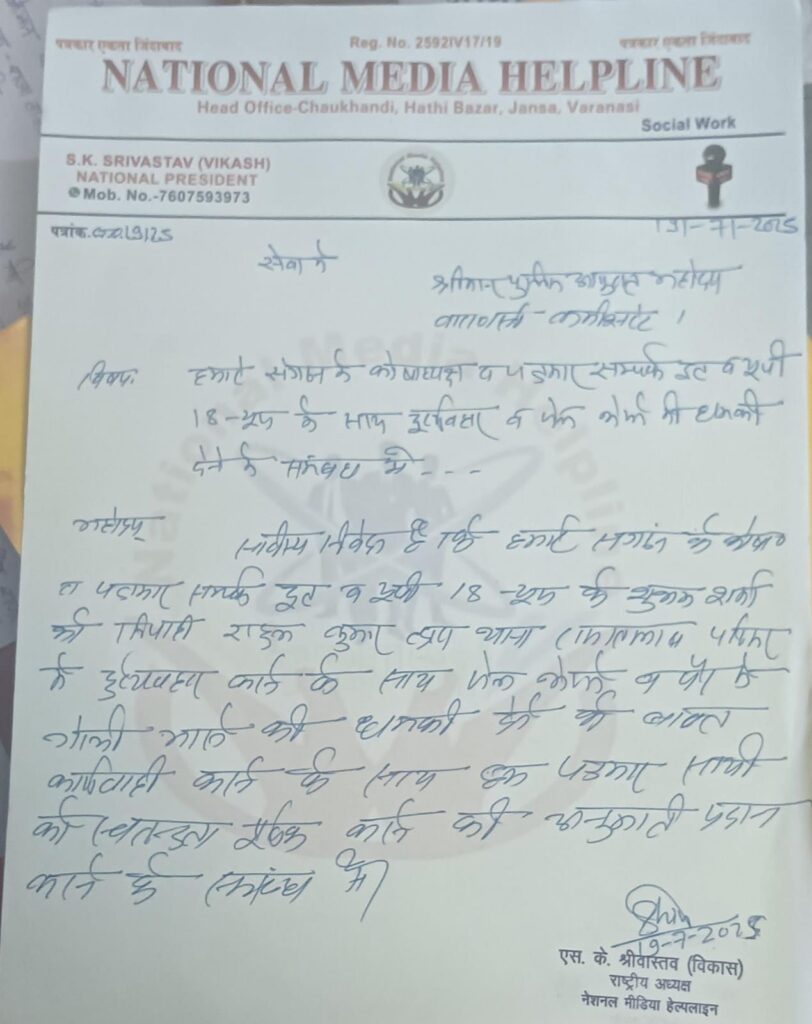 पत्रकार एकता जिंदाबाद Reg. No. 2592IV17/19 पत्रकार एकता जिंदाबाद
NATIONAL MEDIA HELPLINE
Head Office-Chaukhandi, Hathi Bazar, Jansa, Varanasi
Social Work
S.K. SRIVASTAV (VIKASH)
NATIONAL PRESIDENT
Mob. No.-7607593973
पत्रांक. 19/25 19-7-2025
सेवा में
श्रीमान पुलिस आयुक्त महोदय
वाराणसी कमीश्नरेट ।
विषय: हमारे संगठन के कोषाध्यक्ष व पत्रकार सम्पर्क सूत्र व यूपी
18-न्यूज के साथ दुर्व्यवहार व जेल भेजने की धमकी
देने के सम्बंध में - - -
महोदय
सविनय निवेदन है कि हमारे संगठन के
व पत्रकार सम्पर्क सूत्र व यूपी 18-न्यूज के शर्मा
को सिपाही राहुल कुमार थाना
से दुर्व्यवहार करने के साथ जेल भेजने व पैर में
गोली मारने की धमकी देने के बावत
कार्यवाही करने के साथ पत्रकार साथी
को स्वतन्त्रता पूर्वक कार्य करने की अनुमति प्रदान
करने के सम्बंध में
19-7-2025
एस. के. श्रीवास्तव (विकास)
राष्ट्रीय अध्यक्ष
नेशनल मीडिया हेल्पलाइन
National Media Helpline